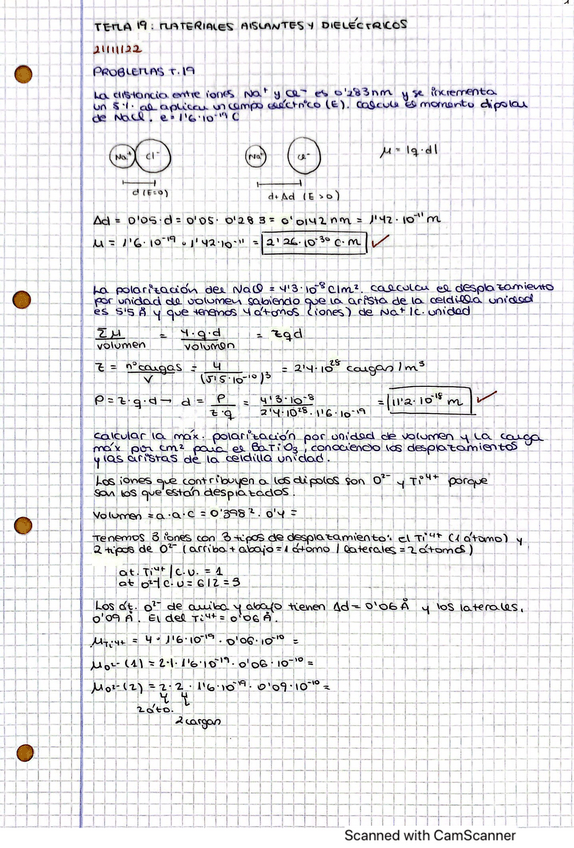 TEMA 19: MATERIALES AISLANTES Y DIELÉCTRICOS
21/11/22
PROBLEMAS T.19
La distancia entre iones Na⁺ y Cl⁻ es 0'283 nm y se incrementa
un 5% al aplicar un campo eléctrico (E). Calcula el momento dipolar
de NaCl. e = 1'6·10⁻¹⁹ C
Na⁺ Cl⁻ Na⁺ Cl⁻ μ = |q·d|
d (E=0) d+Δd (E>0)
Δd = 0'05·d = 0'05·0'283 = 0'0142 nm = 1'42·10⁻¹¹ m
μ = 1'6·10⁻¹⁹·1'42·10⁻¹¹ = 2'26·10⁻³⁰ C·m
La polarización del NaCl = 4'3·10⁻⁸ C/m². Calcular el desplazamiento
por unidad de volumen sabiendo que la arista de la celdilla unidad
es 5'5 Å y que tenemos 4 átomos (iones) de Na⁺/C. unidad
Σμ/volumen = 4·q·d/volumen = zqd
z = nº cargas/V = 4/(5'5·10⁻¹⁰)³ = 2'4·10²⁸ cargas/m³
P = z·q·d → d = P/z·q = 4'3·10⁻⁸/2'4·10²⁸·1'6·10⁻¹⁹ = 11'2·10⁻¹⁸ m
Calcular la máx. polarización por unidad de volumen y la carga
máx por cm² para el BaTiO₃, conociendo los desplazamientos
y las aristas de la celdilla unidad.
Los iones que contribuyen a los dipolos son O²⁻ y Ti⁴⁺ porque
son los que están desplazados.
Volumen = a·a·c = 0'398²·0'4 =
Tenemos 3 iones con 3 tipos de desplazamiento: el Ti⁴⁺ (1 átomo) y
2 tipos de O²⁻ (arriba + abajo = 1 átomo / laterales = 2 átomos)
at. Ti⁴⁺/C.U. = 1
at O²⁻/C.U = 6/2 = 3
Los át. O²⁻ de arriba y abajo tienen Δd = 0'06 Å y los laterales,
0'09 Å. El del Ti⁴⁺ = 0'06 Å.
μTi⁴⁺ = 4·1'6·10⁻¹⁹·0'06·10⁻¹⁰ =
μO²⁻(1) = 2·1·1'6·10⁻¹⁹·0'06·10⁻¹⁰ =
μO²⁻(2) = 2·2·1'6·10⁻¹⁹·0'09·10⁻¹⁰ =
2 áto.
2 cargas
Scanned with CamScanner